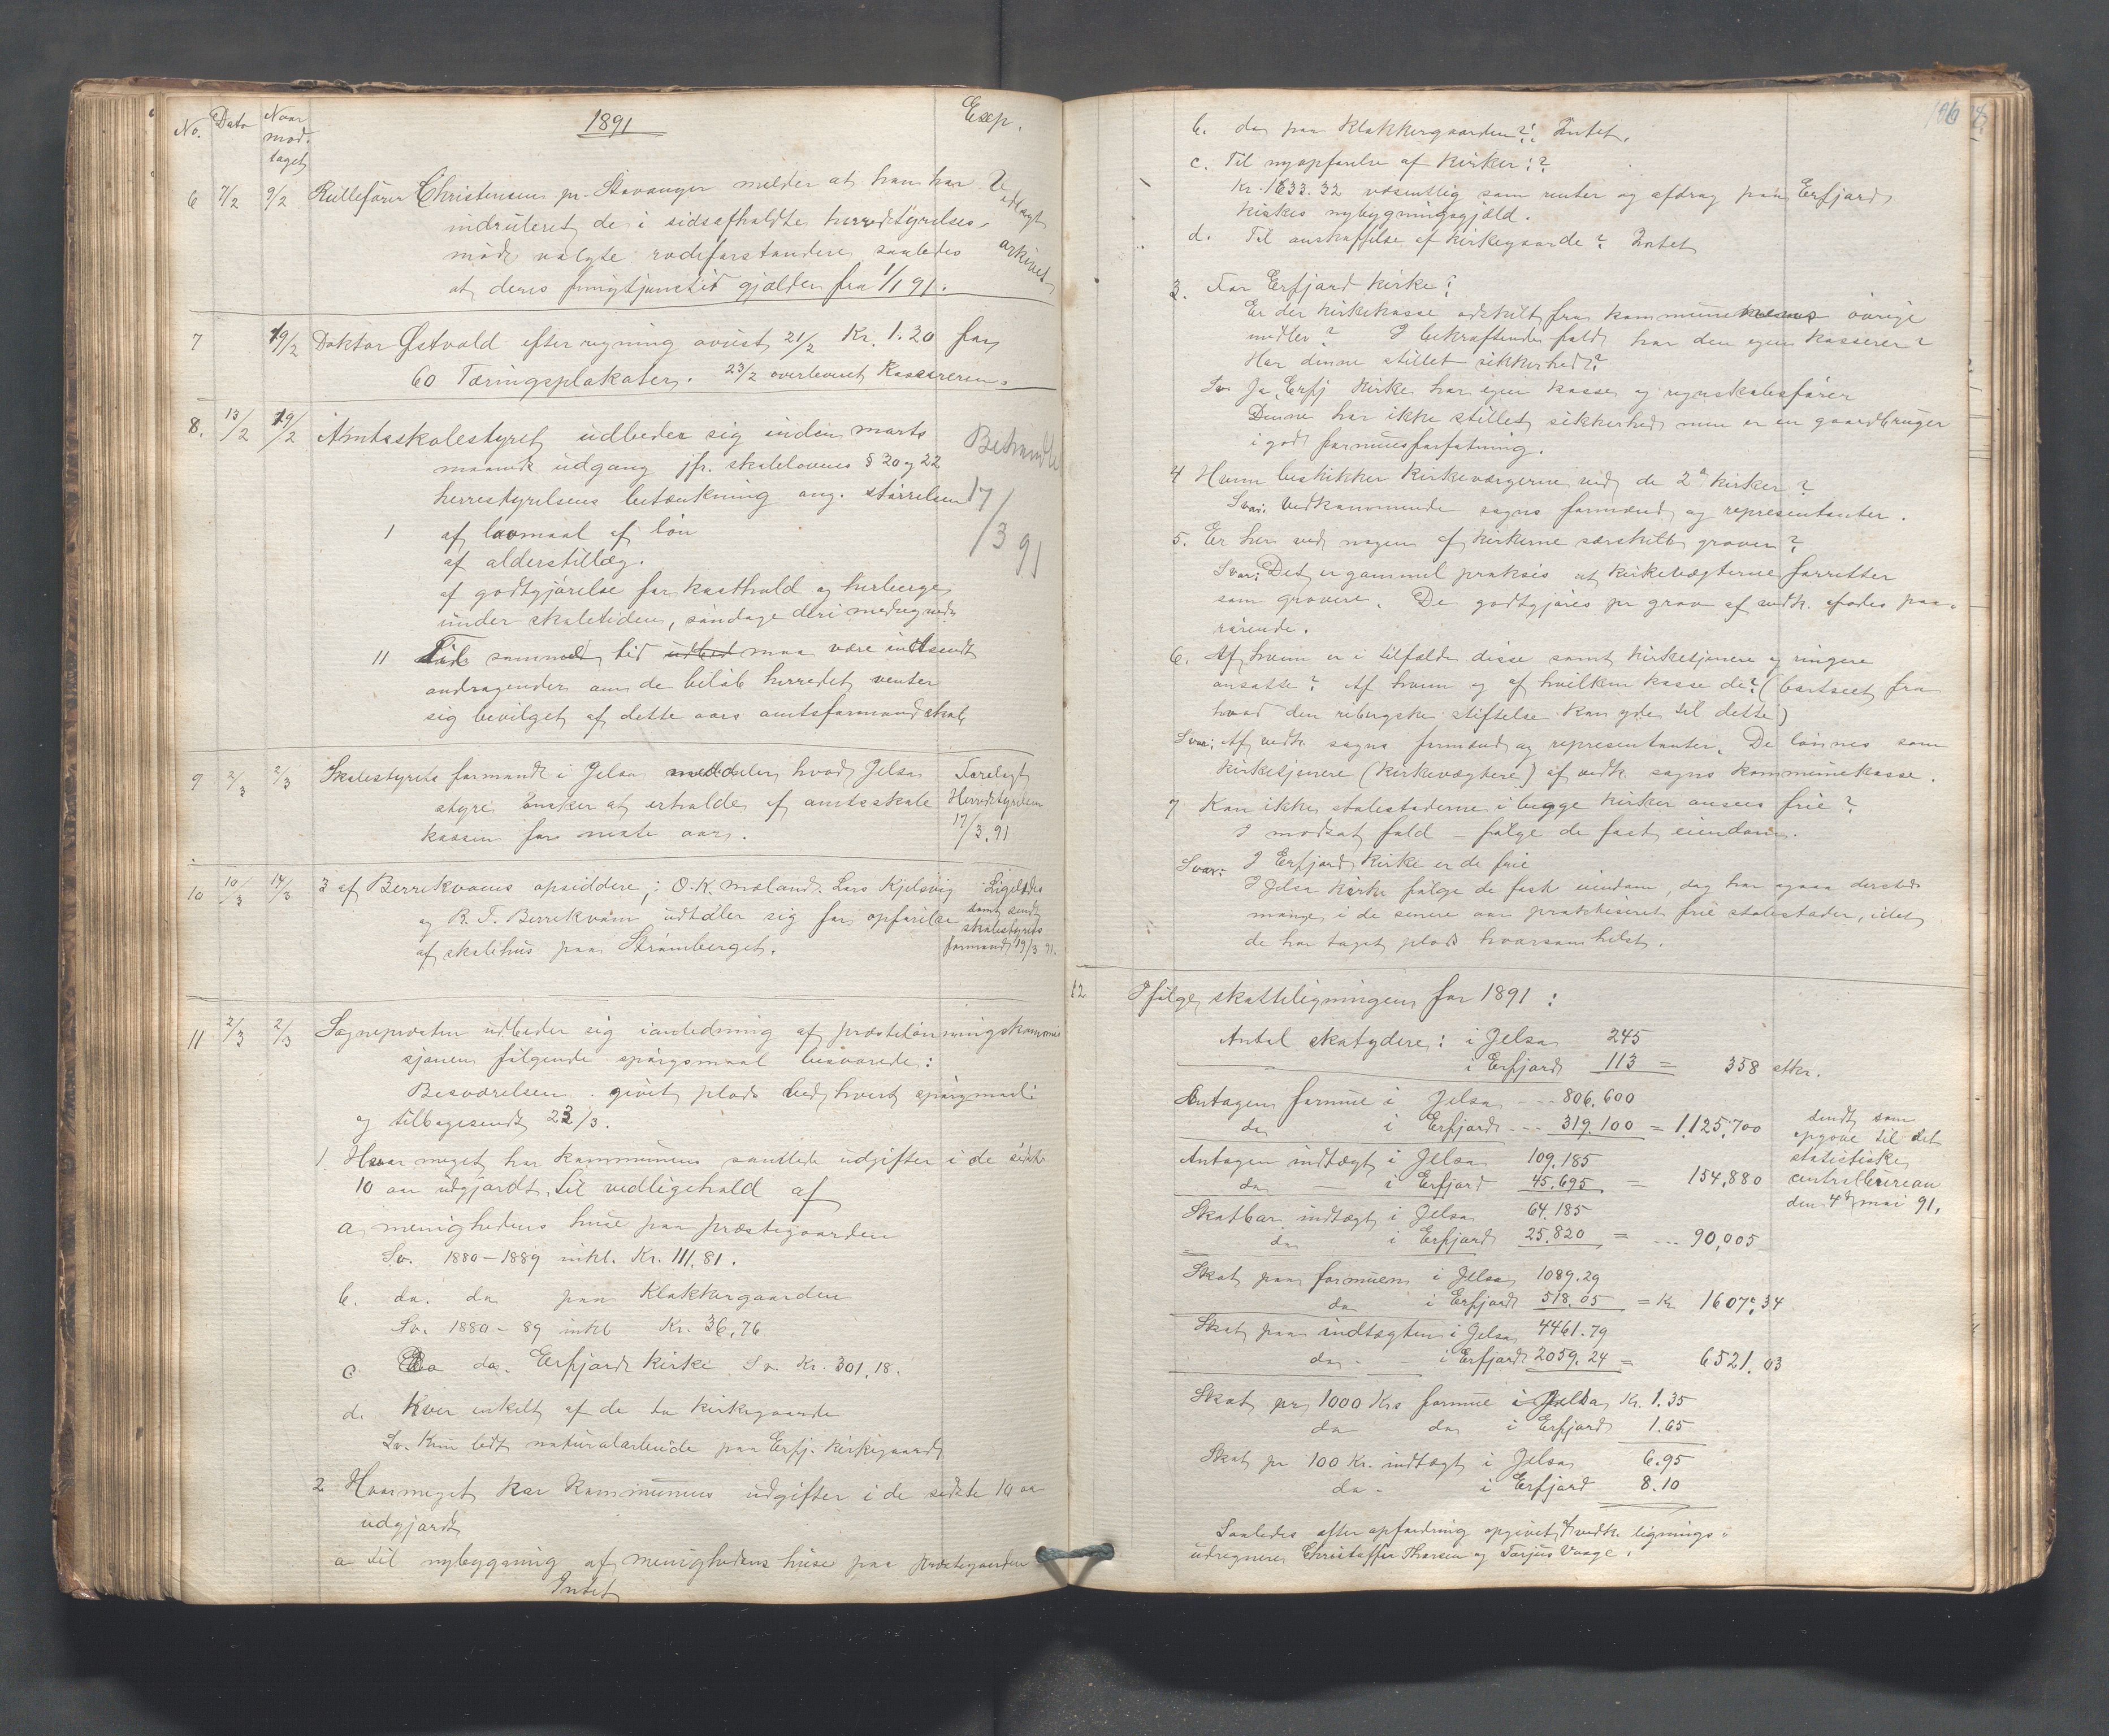 No. Dato Naar mod. taget 1891 Exp.
6 7/2 9/2 Rullefører Christensen pr. Stavanger melder at han har
indrulleret de i sidsafholdte herredstyrelses-
møde valgte rodeforstandere saaledes
at deres fungtjenstid gjælder fra 1/1 91.
Vedlagt arkivet
7 19/2 Doktor Østvold efter regning avist 21/2 Kr. 1.20 for
60 Tæringsplakater. 23/2 overleveret Kassereren.
8. 13/2 19/2 Amtsskolestyret udbeder sig inden marts
maaneds udgang jfr. skolelovens § 20 og 22
herrestyrelsens betænkning ang. størrelsen
1 af lavmaal af løn
af alderstillæg.
af godtgjørelse for kosthold og herberge
under skoletiden, søndage deri medregnede
Behandlet
17/3 91
11 Til samme tid udbed maa være indsendt
andragender om de beløb herredet venter
sig bevilget af dette aars amtsformandskab
9 2/3 2/3 Skolestyrets formand i Jelsa meddeler hvad Jelsa
styre ønsker at erholde af amtsskole
kassen for neste aar.
Forelagt
Herredstyrelsen
17/3.91
10 10/3 14/3 3 af Berrekvams opsiddere; O. K. Mæland. Lars Kjelsvig
og R. T. Berrekvam udtaler sig for opførelse
af skolehus paa Strømberget.
Ligeledes
samt sendt
skolestyrets
formand 19/3 91.
11 2/3 2/3 Sognepresten udbeder sig ianledning af præstelønningskommi
sjonen følgende spørgsmaal besvarede:
Besvarelsen givet plads ved hvert spørgmaal
og tilbagesendt 23/3.
1. Hvor meget har kommunens samtlede udgifter i de sidste
10 aar udgjordt til vedligehold af
a, menighedens huse paa præstegaarden
Sv. 1880-1889 inkl. Kr. 111,81.
b. do. do paa Klokkergaarden
Sv. 1880-89 inkl Kr. 36,76
c do. Erfjord kirke Sv. Kr. 301,18.
d. Hver enkelt af de to kirkegaarde
Sv. Kun lidt naturalarbeide paa Erfj. kirkegaard
2 Hvormeget har kommunens udgifter i de sidste 10 aar
udgjordt
a til nybygning af menighedens huse paa præstegaarden
Intet
106
b. do paa Klokkergaarden? Intet.
c. Til nyopførelse af kirker:?
Kr. 1633.32 væsentlig som renter og afdrag paa Erfjord
kirkes nybygningsgjæld.
d. Til anskaffelse af kirkegaarde? Intet
3. For Erfjord kirke:
Er der kirkekasse adskilt fra kommunens øvrige
midler? I bekræftende fald har den egen kasserer?
Har denne stillet sikkerhed?
Sv. Ja, Erfj kirke har egen kasse og regnskabsfører
Denne har ikke stillet sikkerhed men er en gaardbruger
i god formuesforfatning.
4 Hvem beskikker kirkeværgerne ved de 2de kirker?
Svar: Vedkommende sogns formænd og representanter.
5. Er her ved nogen af kirkerne særskilt graver?
Svar: Det er gammel praksis at kirkevægterne forretter
som gravere. De godtgjøres pr grav af vedk. afødes paa-
rørende.
6. Af hvem er i tilfælde disse samt kirketjenere og ringere
ansatte? Af hvem og af hvilken kasse de? (bortseet fra
hvad den rebergske stiftelse kan yde til dette)
Svar: Af vedk. sogns formænd og representanter. De lønnes som
kirketjenere (kirkevægtere) af vedk. sogns kommunekasse.
7 Kan ikke stolestaderne i begge kirker ansees frie?
I modsat fald – følge de fast eiendom.
Svar: I Erfjord kirke er de frie
I Jelsa kirke følge de fast eiendom, dog har ogsaa dersteds
mange i de senere aar praktiseret frie stolestader, idet
de har taget plads hvorsomhelst.
12 Ifølge skatteligningen for 1891:
Antal skatydere: i Jelsa 245
i Erfjord 113 = 358 stkr.
Antagen formue i Jelsa --- 806.600
do i Erfjord --- 319.100 = 1.125.700
Antagen indtægt i Jelsa 109.185
do — i Erfjord 45.695 = 154.880
Skatbar indtægt i Jelsa 64.185
do i Erfjord 25.820 = ... 90,005
sendt som
opgave til det
statistiske
centralbureau
den 4de mai 91.
Skat paa formuen i Jelsa 1089.29
do i Erfjord 518.05 = Kr 1607.34
Skat paa indtægten i Jelsa 4461.79
do - - i Erfjord 2059.24 = 6521.03
Skat pr 1000 Krs formue i Jelsa Kr. 1.35
do do i Erfjord 1.65
Skat pr 100 Kr. indtægt i Jelsa 6.95
do - i Erfjord 8.10
Saaledes efter opfordring opgivet af vedk. lignings-
udregnere Christoffer Thorsen og Torjus Vaage.